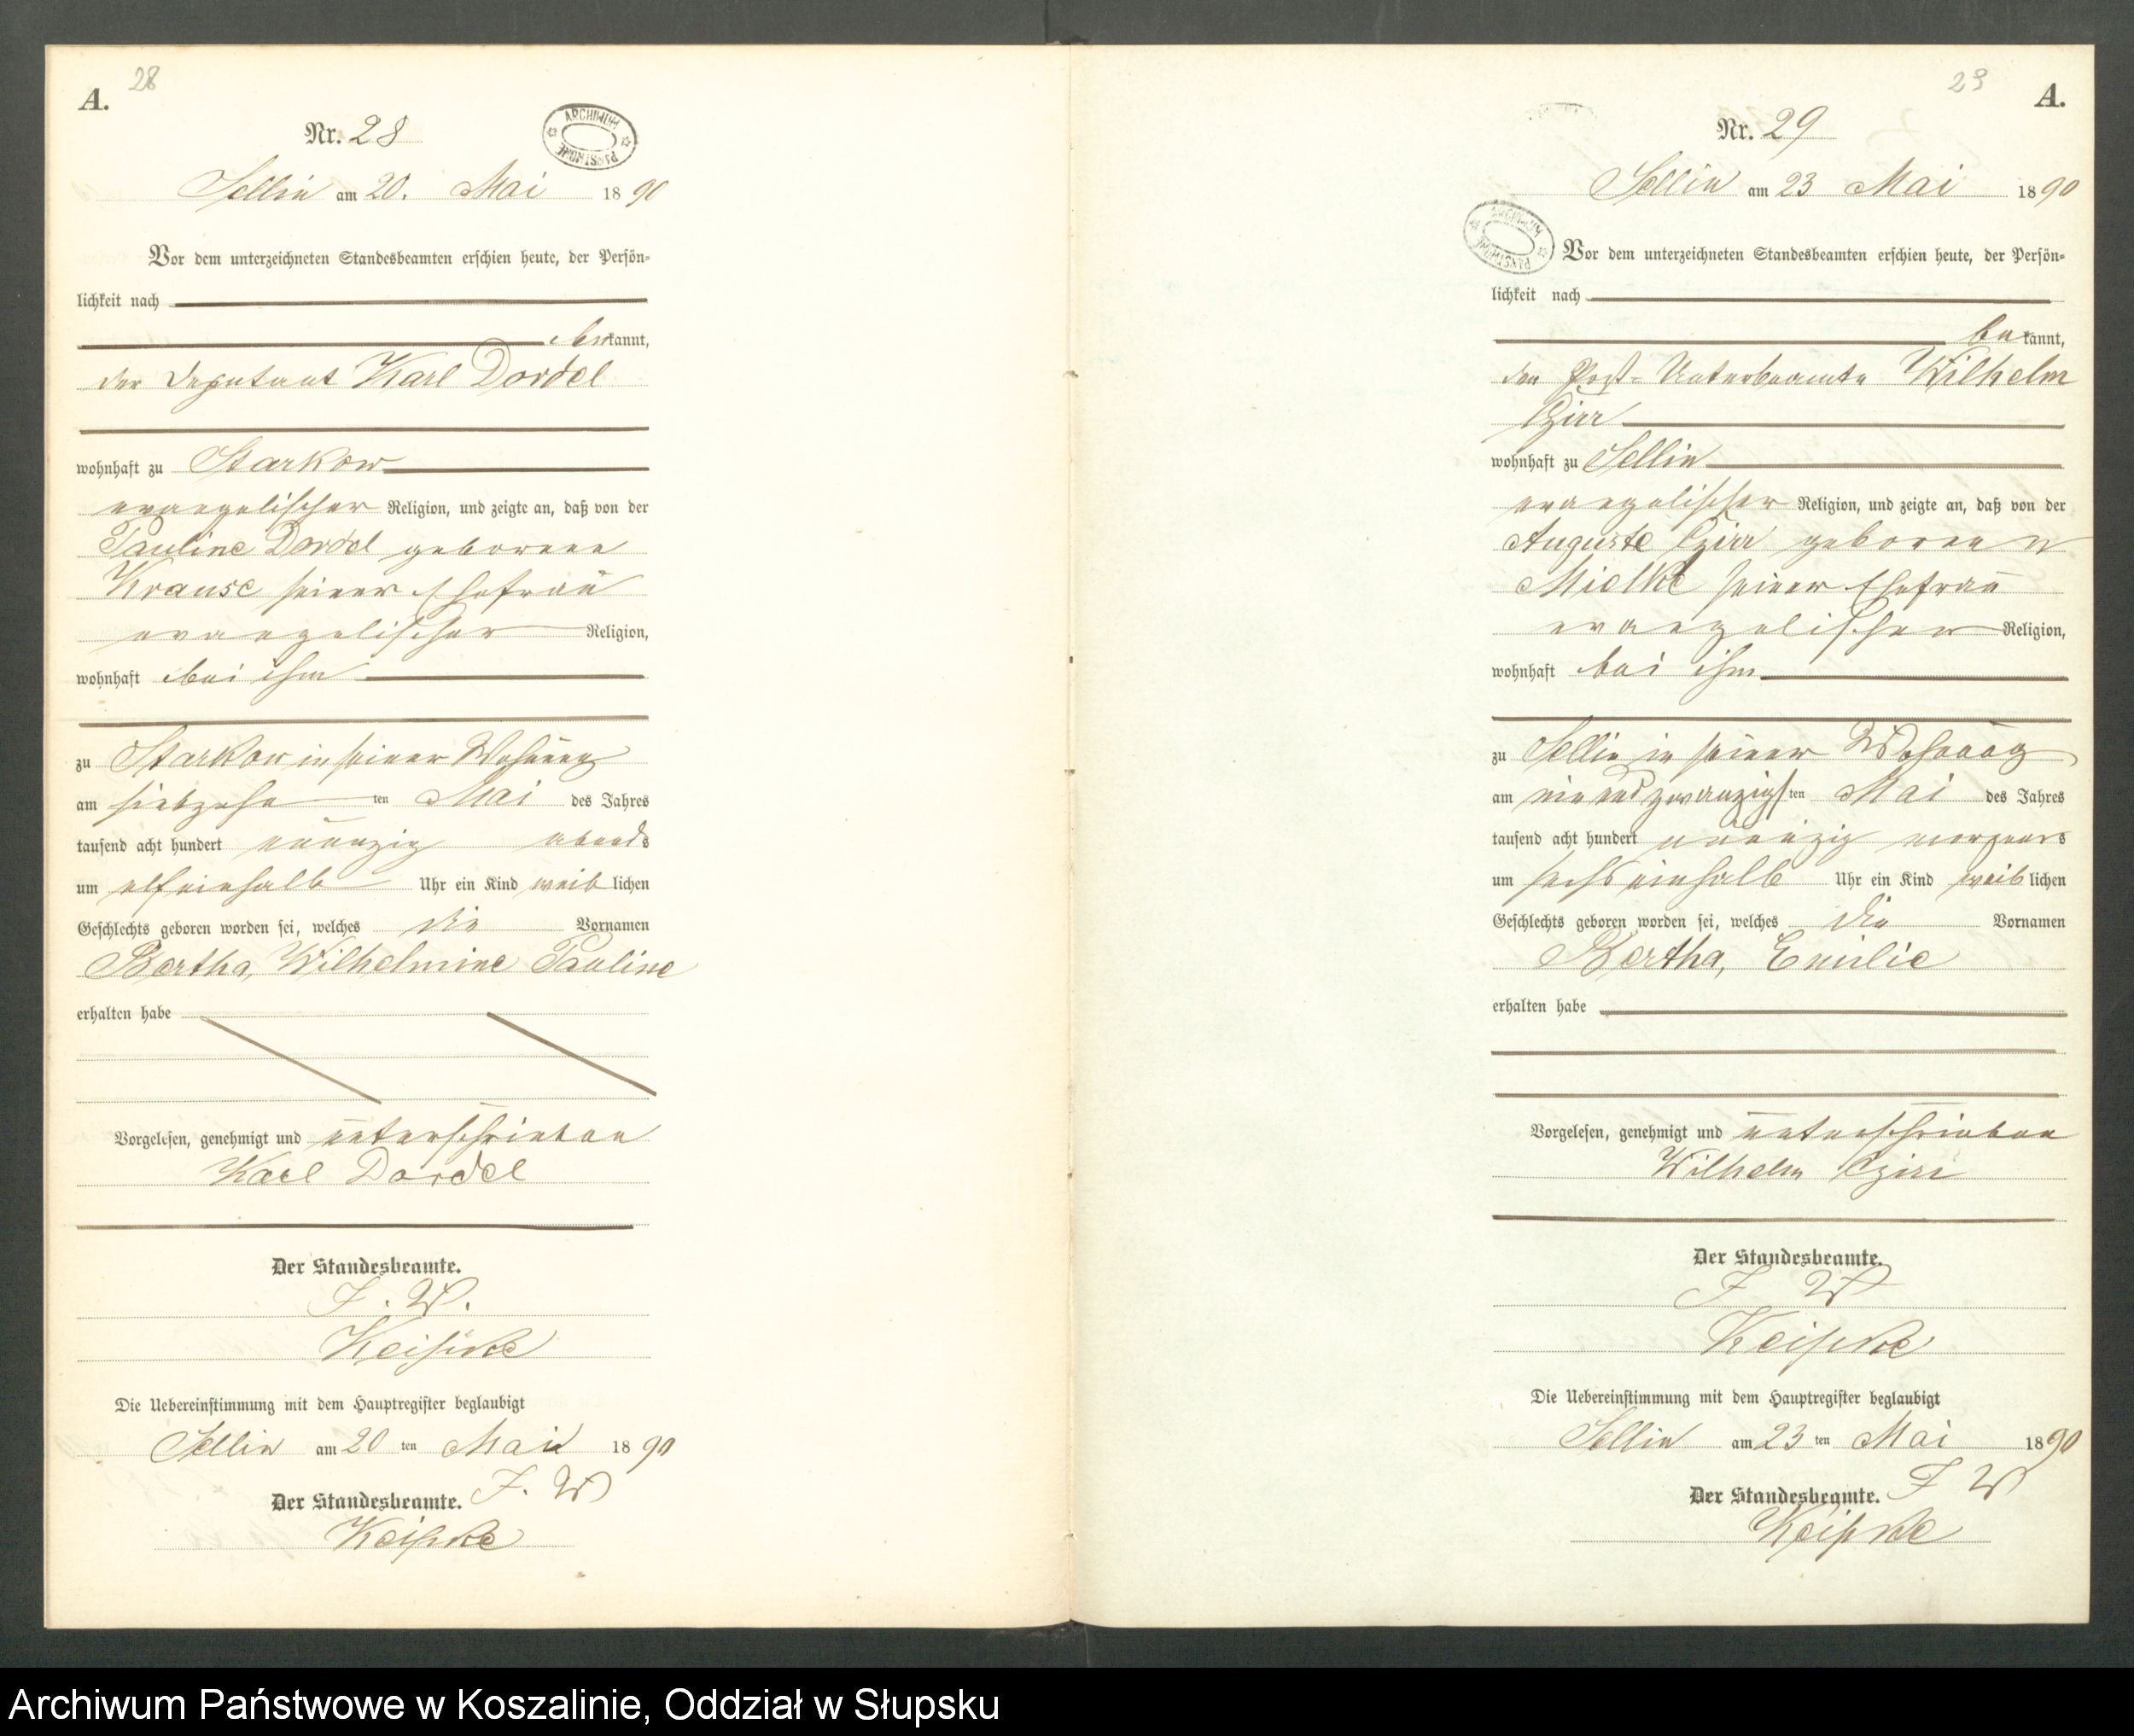 A.
28
Nr. 28
ARCHIWUM PAŃSTWOWE
Sellin am 20. Mai 1890
Vor dem unterzeichneten Standesbeamten erschien heute, der Persön-
lichkeit nach
bekannt,
der Deputant Karl Dordel
wohnhaft zu Starkow
evangelischer Religion, und zeigte an, daß von der
Pauline Dordel geborene
Krause seiner Ehefrau
evangelischer Religion,
wohnhaft bei ihm
zu Starkow in seiner Wohnung
am siebzehn ten Mai des Jahres
tausend acht hundert neunzig abends
um elfeinhalb Uhr ein Kind weiblichen
Geschlechts geboren worden sei, welches die Vornamen
Bertha, Wilhelmine Pauline
erhalten habe
Vorgelesen, genehmigt und unterschrieben
Karl Dordel
Der Standesbeamte.
I. V.
Keipke
Die Uebereinstimmung mit dem Hauptregister beglaubigt
Sellin am 20 ten Mai 1890
Der Standesbeamte. I. V.
Keipke
29
A.
Nr. 29
Sellin am 23 Mai 1890
ARCHIWUM PAŃSTWOWE
Vor dem unterzeichneten Standesbeamten erschien heute, der Persön-
lichkeit nach
bekannt,
der Post-Unterbeamte Wilhelm
Czirr
wohnhaft zu Sellin
evangelischer Religion, und zeigte an, daß von der
Auguste Czirr geboren
Mielke seiner Ehefrau
evangelischer Religion,
wohnhaft bei ihm
zu Sellin in seiner Wohnung
am einundzwanzigsten Mai des Jahres
tausend acht hundert neunzig morgens
um sechseinhalb Uhr ein Kind weiblichen
Geschlechts geboren worden sei, welches die Vornamen
Bertha, Emilie
erhalten habe
Vorgelesen, genehmigt und unterschrieben
Wilhelm Czirr
Der Standesbeamte.
I V
Keipke
Die Uebereinstimmung mit dem Hauptregister beglaubigt
Sellin am 23 ten Mai 1890
Der Standesbeamte. I V
Keipke
Archiwum Państwowe w Koszalinie, Oddział w Słupsku